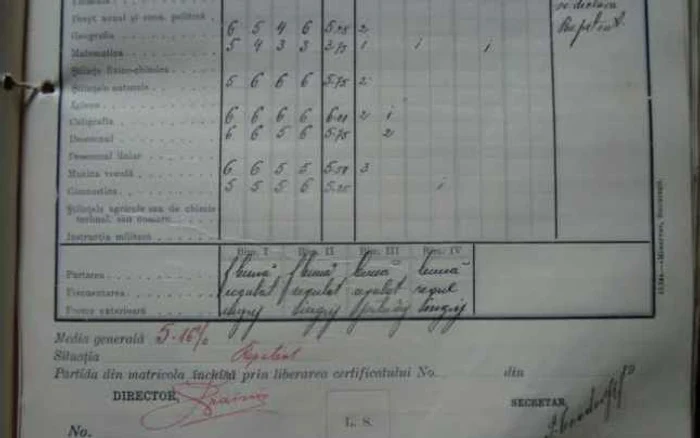 Drept uzual și cons. politică
Geografia 6 5 4 6 5.25 2
Matematica 5 4 3 3 3.75 1 i i
Științe fizico-chimice
Științele naturale 5 6 6 6 5.75 2
Igiena
Caligrafia 6 6 6 6 6.00 2 i
Desemnul 6 6 5 6 5.75 2
Desemnul liniar
Muzica vocală 6 6 5 5 5.50 3
Gimnastica 5 5 5 6 5.25 i
Științele agricole sau de chimie
Instrucția militară
se declara
Repetent.
Bim. I Bim. II Bim. III Bim. IV
Purtarea bună bună bună bună
Frecuentarea regulat regulat regulat regul
Forma exterioară îngrij îngrij îngrij
Media generală 5.16%
Situația Repetent
Partida din matricola închisă prin liberarea certificatului No. din
DIRECTOR,
SECRETAR,
L. S.
No.
—Minerva, București.